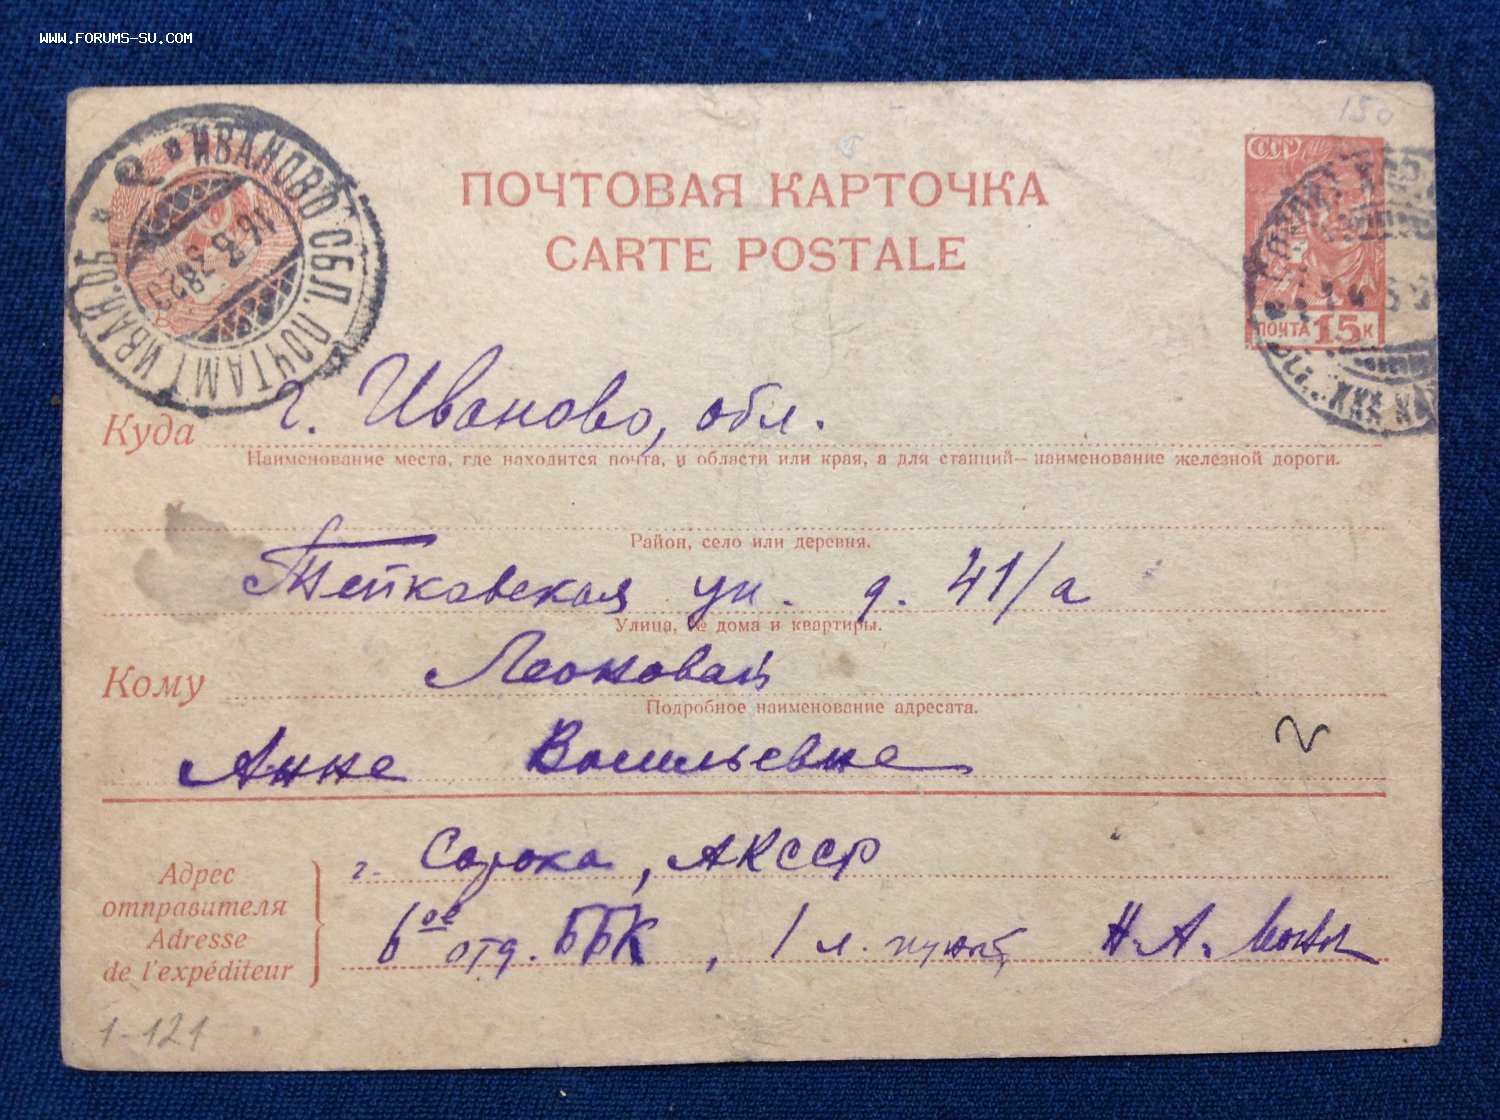 WWW.FORUMS-SU.COM
150
ИВАНОВО ОБЛ. ПОЧТАМТ ИВАН.ОБ.
ПОЧТОВАЯ КАРТОЧКА
CARTE POSTALE
СССР
ПОЧТА 15 К
Куда г. Иваново, обл.
Наименование места, где находится почта, и области или края, а для станций— наименование железной дороги.
Район, село или деревня.
ул. д. 41/а
Улица, № дома и квартиры.
Кому
Подробное наименование адресата.
Анне Васильевне
Адрес отправителя
Adresse de l'expéditeur
г. Сорока, АКССР
6ое отд. ББК, 1 л. пункт Н. А.
1-121